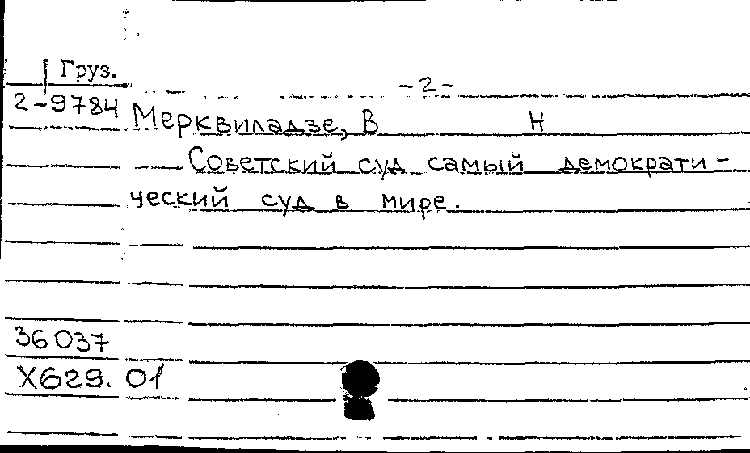 Груз.
-2-
2-9784
Мерквиладзе, В Н
Советский суд самый демократи-
ческий суд в мире.
36037
X629.01